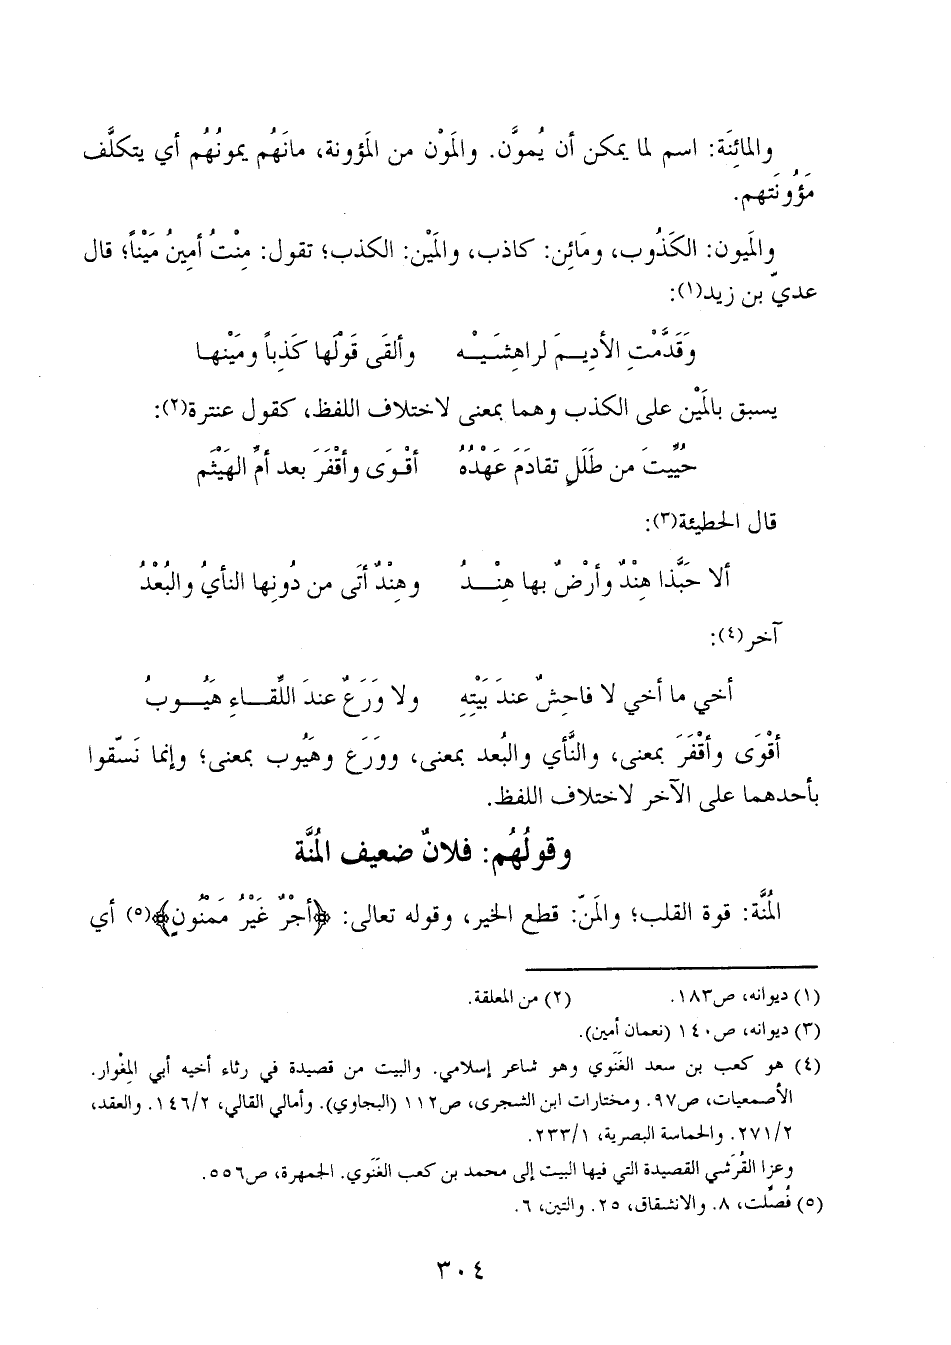 والمائِنَة: اسم لما يمكن أن يُموَّن. والمَوْن من المَؤونة، مانَهُم يمونُهُم أي يتكلَّف
مَؤُونَتهم.
والمَيون: الكَذُوب، ومَائِن: كاذب، والمَيْن: الكذب؛ تقول: مِنْتُ أمِينُ مَيْناً؛ قال
عديّ بن زيد(١):
وَقَدَّمْتِ الأدِيـمَ لراهِشَـيْـه وألقَى قَوْلَها كَذِباً ومَيْنهـا
يسبق بالمَيْن على الكذب وهما بمعنى لاختلاف اللفظ، كقول عنترة(٢):
حُيِّيتَ من طَلَلٍ تقادَمَ عَهْدُهُ أقْـوَى وأقْفَرَ بعد أمِّ الهَيْثَم
قال الحطيئة(٣):
ألا حَبَّذا هِنْدٌ وأرْضٌ بها هِنْـــدُ وهِنْدٌ أتَى من دُونِها النأيُ والبُعْدُ
آخر(٤):
أخي ما أخي لا فاحِشٌ عندَ بَيْتِهِ ولا وَرَعٌ عندَ اللِّقـــاءِ هَيُـــوبُ
أقْوَى وأقْفَرَ بمعنى، والنَّأي والبُعد بمعنى، ووَرَع وهَيُوب بمعنى؛ وإنما نَسّقوا
بأحدهما على الآخر لاختلاف اللفظ.
وقولُهُم: فلانٌ ضعيف المُنَّة
المُنَّة: قوة القلب؛ والمَنّ: قطع الخير، وقوله تعالى: ﴿أجْرٌ غَيْرُ مَمْنُونٍ﴾(٥) أي
(١) ديوانه، ص١٨٣. (٢) من المعلقة.
(٣) ديوانه، ص١٤٠ (نعمان أمين).
(٤) هو كعب بن سعد الغَنَوي وهو شاعر إسلامي. والبيت من قصيدة في رثاء أخيه أبي المِغْوار.
الأصمعيات، ص٩٧. ومختارات ابن الشجرى، ص١١٢ (البجاوي). وأمالي القالي، ١٤٦/٢. والعقد،
٢٧١/٢. والحماسة البصرية، ٢٣٣/١.
وعزا القُرَشي القصيدة التي فيها البيت إلى محمد بن كعب الغَنَوي. الجمهرة، ص٥٥٦.
(٥) فُصِّلت، ٨. والانشقاق، ٢٥. والتين، ٦.
٣٠٤